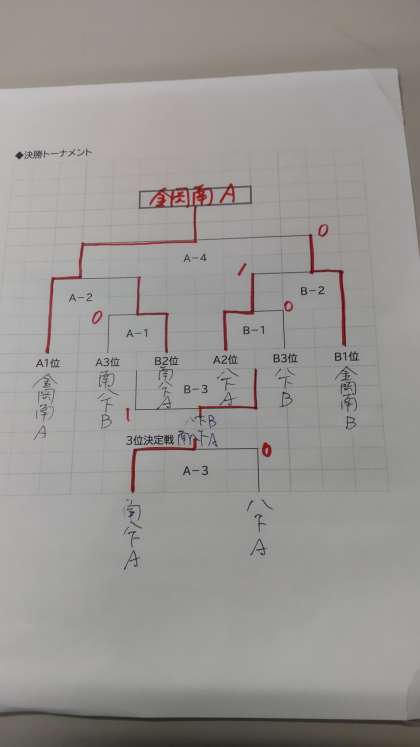 ◆決勝トーナメント
金岡南 A
0
A-4
1
A-2
B-2
0
0
A-1
B-1
A1位 A3位 B2位 A2位 B3位 B1位
金岡南A
南八下B
南八下A
八下A
八下B
金岡南B
B-3
1
八下B
3位決定戦
南八下A
0
A-3
南八下A
八下A